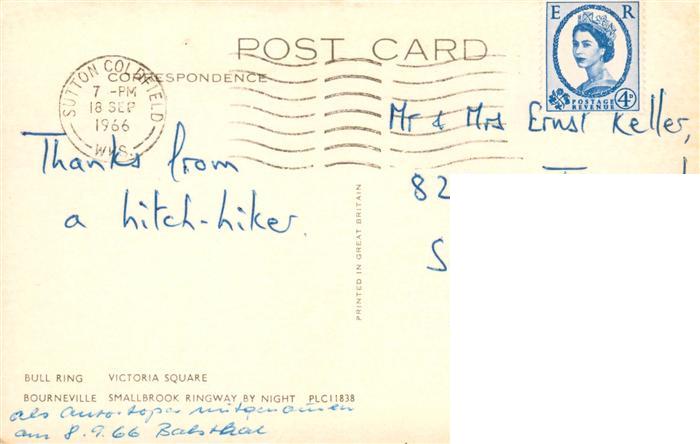 POST CARD
CORRESPONDENCE
SUTTON COLDFIELD
7 - PM
18 SEP
1966
WKS.
E R
POSTAGE
REVENUE
4D
Mr & Mrs Ernst Keller,
82
S
Thanks from
a hitch-hiker.
PRINTED IN GREAT BRITAIN
BULL RING VICTORIA SQUARE
BOURNEVILLE SMALLBROOK RINGWAY BY NIGHT PLC11838
als Autostoper mitgenommen
am 8.9.66 Balsthal